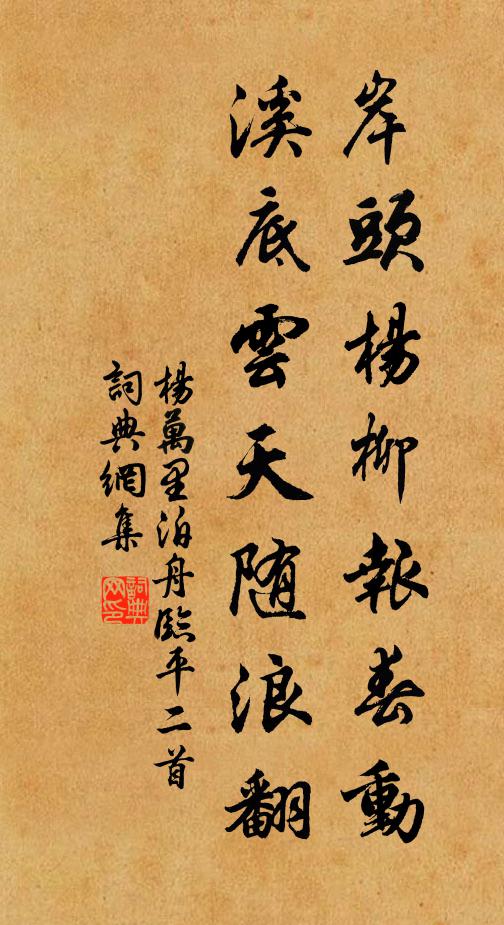 岸頭楊柳報春動
溪底雲天随浪翻
楊萬里泊舟臨平二首
詞典網集
詞典網印